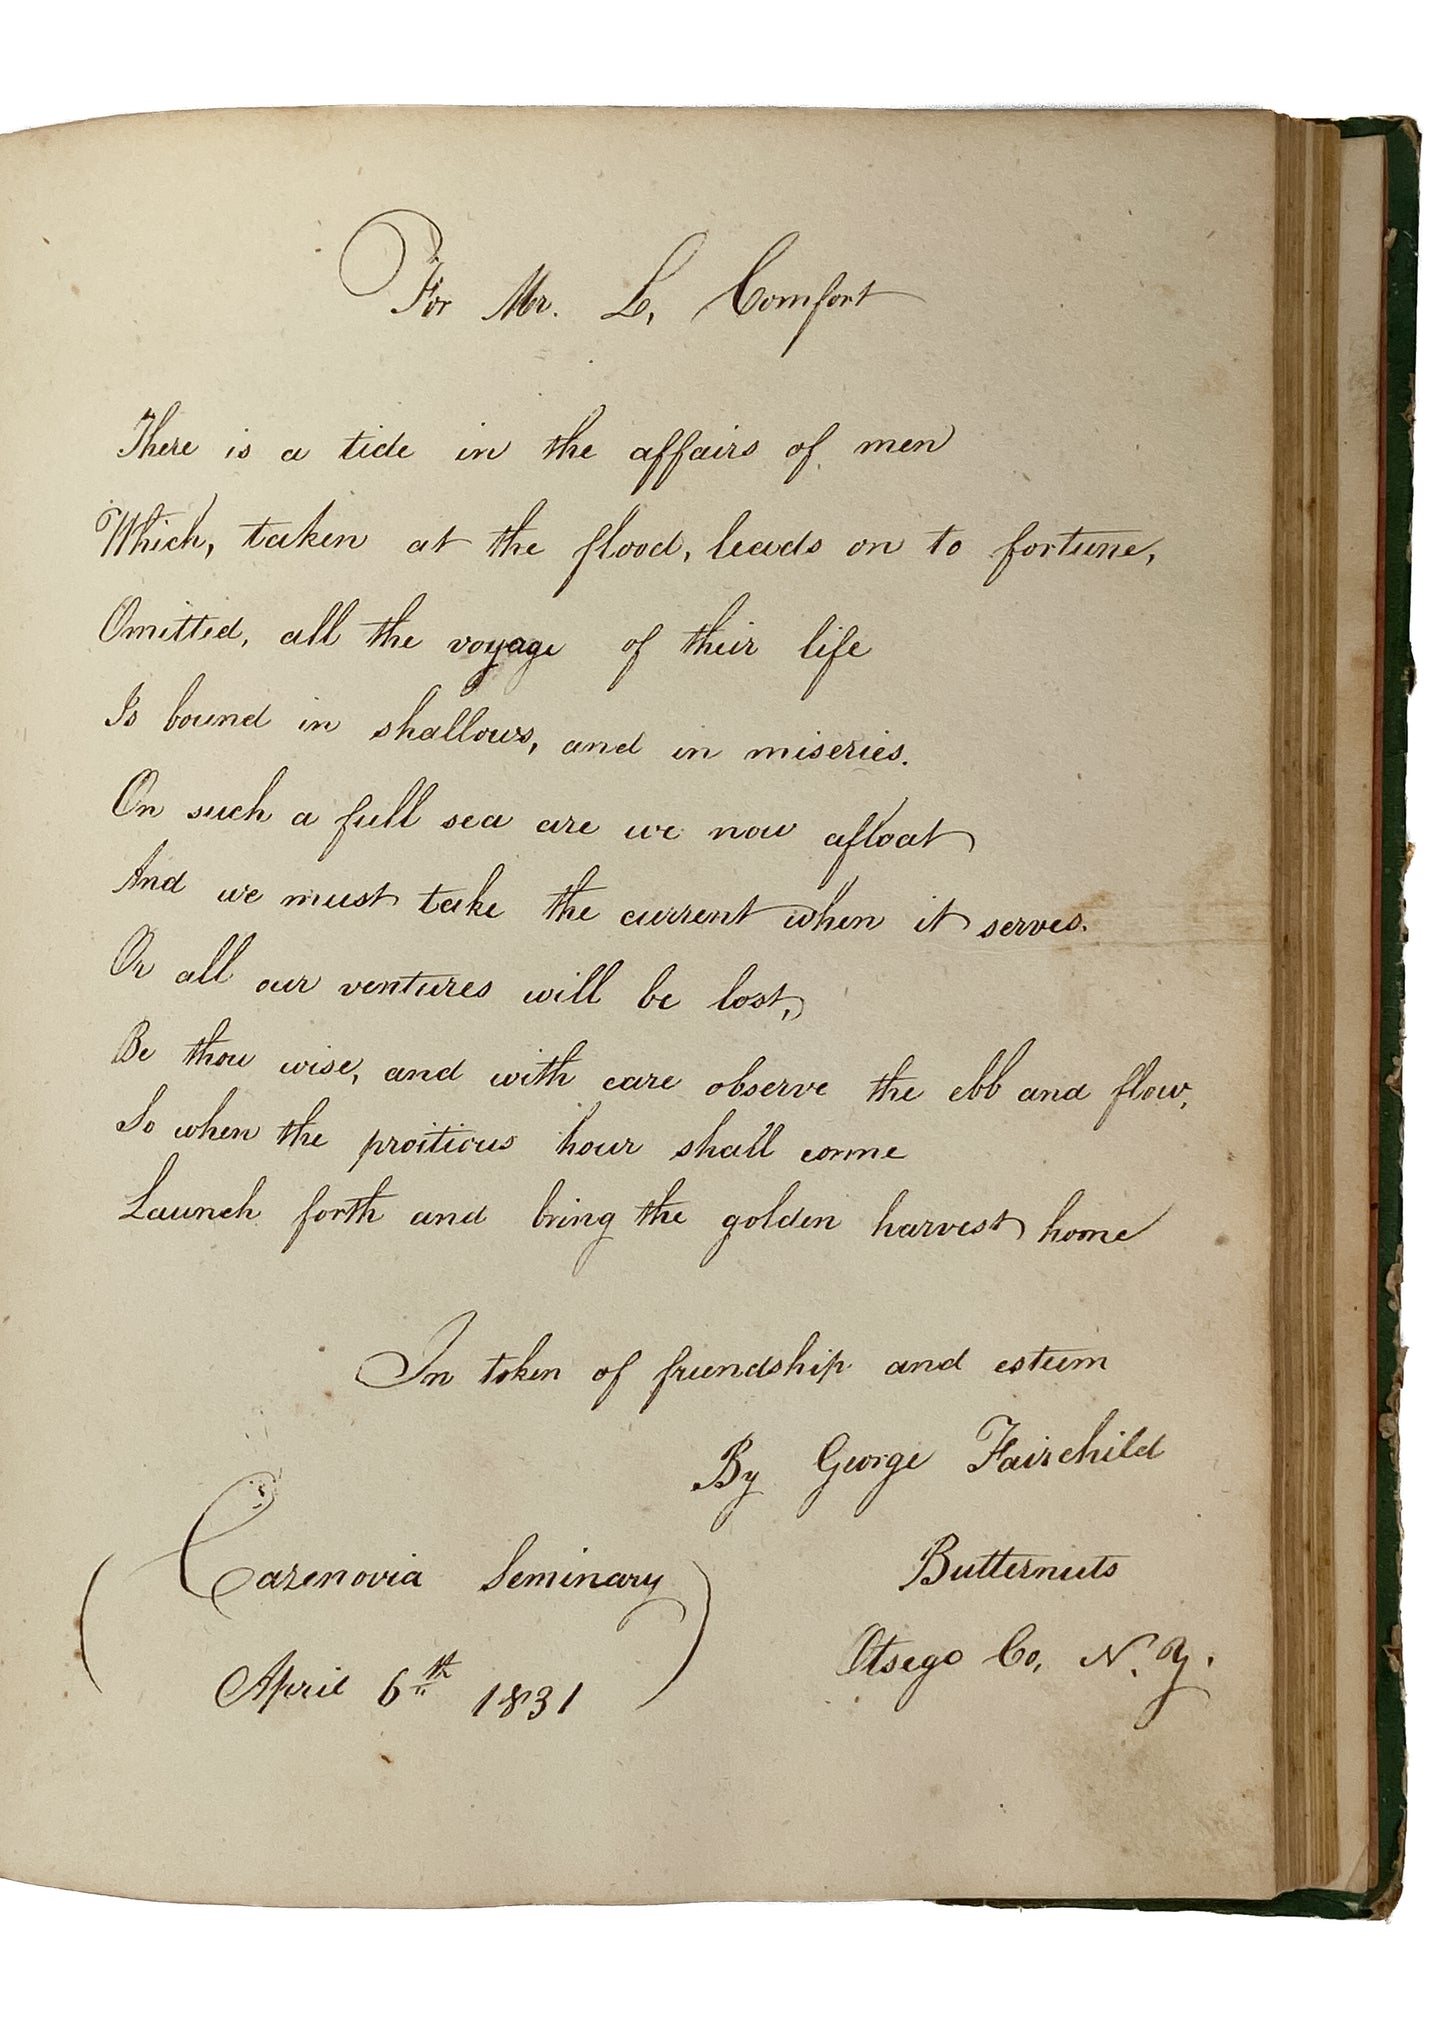 For Mr. L. Comfort
There is a tide in the affairs of men
Which, taken at the flood, leads on to fortune,
Omitted, all the voyage of their life
Is bound in shallows, and in miseries.
On such a full sea are we now afloat
And we must take the current when it serves.
Or all our ventures will be lost,
Be thou wise, and with care observe the ebb and flow,
So when the proitious hour shall come
Launch forth and bring the golden harvest home
In token of friendship and esteem
By George Fairchild
(Cazenovia Seminary
April 6th 1831)
Butternuts
Otsego Co, N. Y.